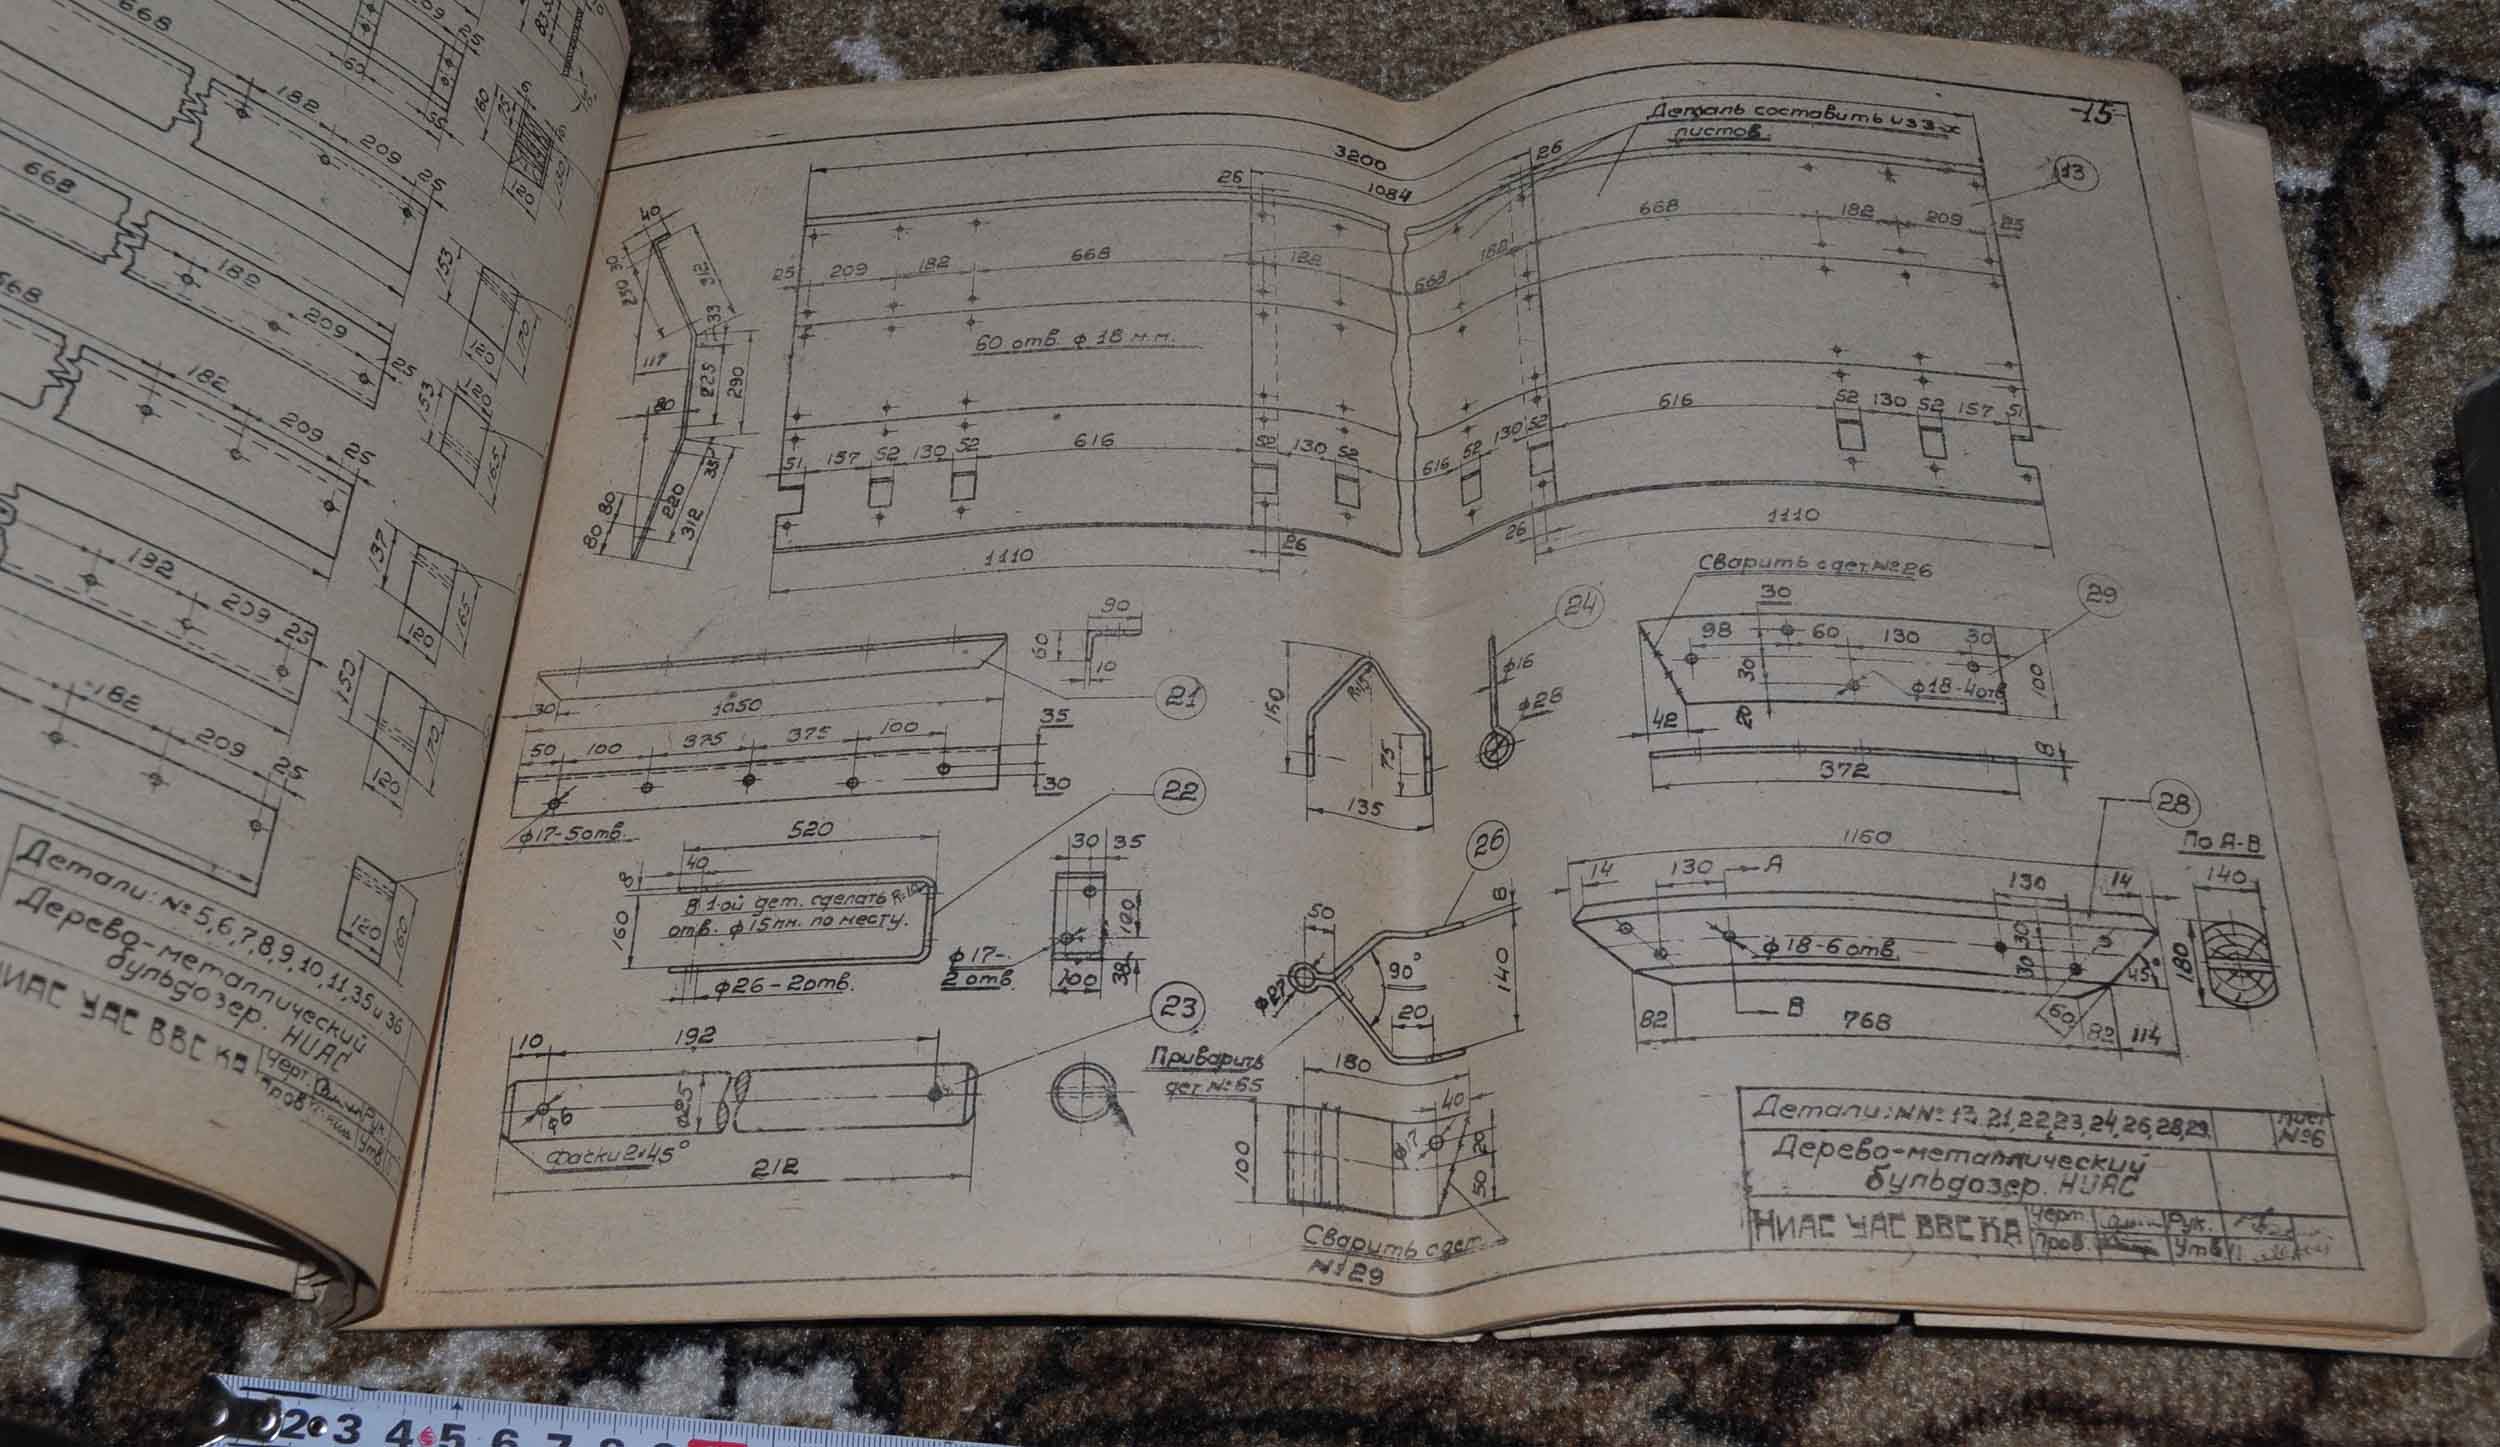 668
182
209
25
668
182
209
25
668
182
209
25
182
209
25
182
209
25
60
160
75
120
130
153
120
170
153
120
120
165
137
120
165
150
120
170
120
160
Детали: №5,6,7,8,9,10,11,35 и 36
Дерево-металлический
бульдозер. НИАС
НИАС УАС ВВС КА
Черт.
Рук.
Пров.
Утв.
15
Деталь составить из 3-х
листов.
13
3200
26
1084
26
40
30
250
312
33
117
225
290
80
35
220
312
80
80
25
209
182
668
182
668
182
668
182
209
25
60 отв. ф 18 м.м.
51
157
52
130
52
616
52
130
52
616
52
130
52
616
52
130
52
157
51
1110
26
26
1110
90
60
10
21
30
1050
50
100
375
375
100
35
30
ф17-5отв.
22
520
40
8
160
В 1-ой дет. сделать
отв. ф 15мм. по месту.
R=10
ф26-2отв.
30
35
100
38
100
ф17-
2отв.
23
10
192
ф6
ф25
фаски 2×45°
212
150
R=15
75
135
24
ф16
ф28
26
50
8
ф27
90°
20
140
Приварить
дет. №65
180
40
100
20
50
Сварить с дет.
№29
Сварить с дет. №26
29
30
98
60
130
30
30
100
ф18-4отв.
42
20
8
372
28
1160
14
130
А
130
14
ф18-6 отв.
30
30
45°
В
82
768
60
82
114
По А-В
140
180
Детали: №№ 13,21,22,23,24,26,28,29.
Лист
№6
Дерево-металлический
бульдозер. НИАС
НИАС УАС ВВС КА
Черт.
Рук.
Пров.
Утв.
2
3
4
5
6
7
8